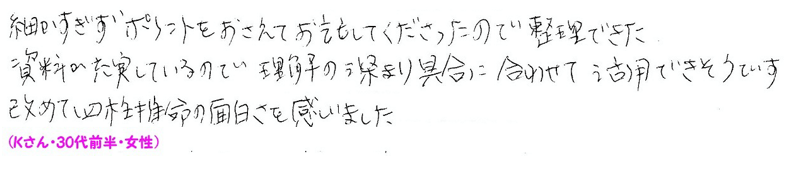 細かすぎずポイントをおさえてお話してくださったので整理できた
資料が充実しているので理解の深まり具合に合わせて活用できそうです
改めて四柱推命の面白さを感じました
(Kさん・30代前半・女性)